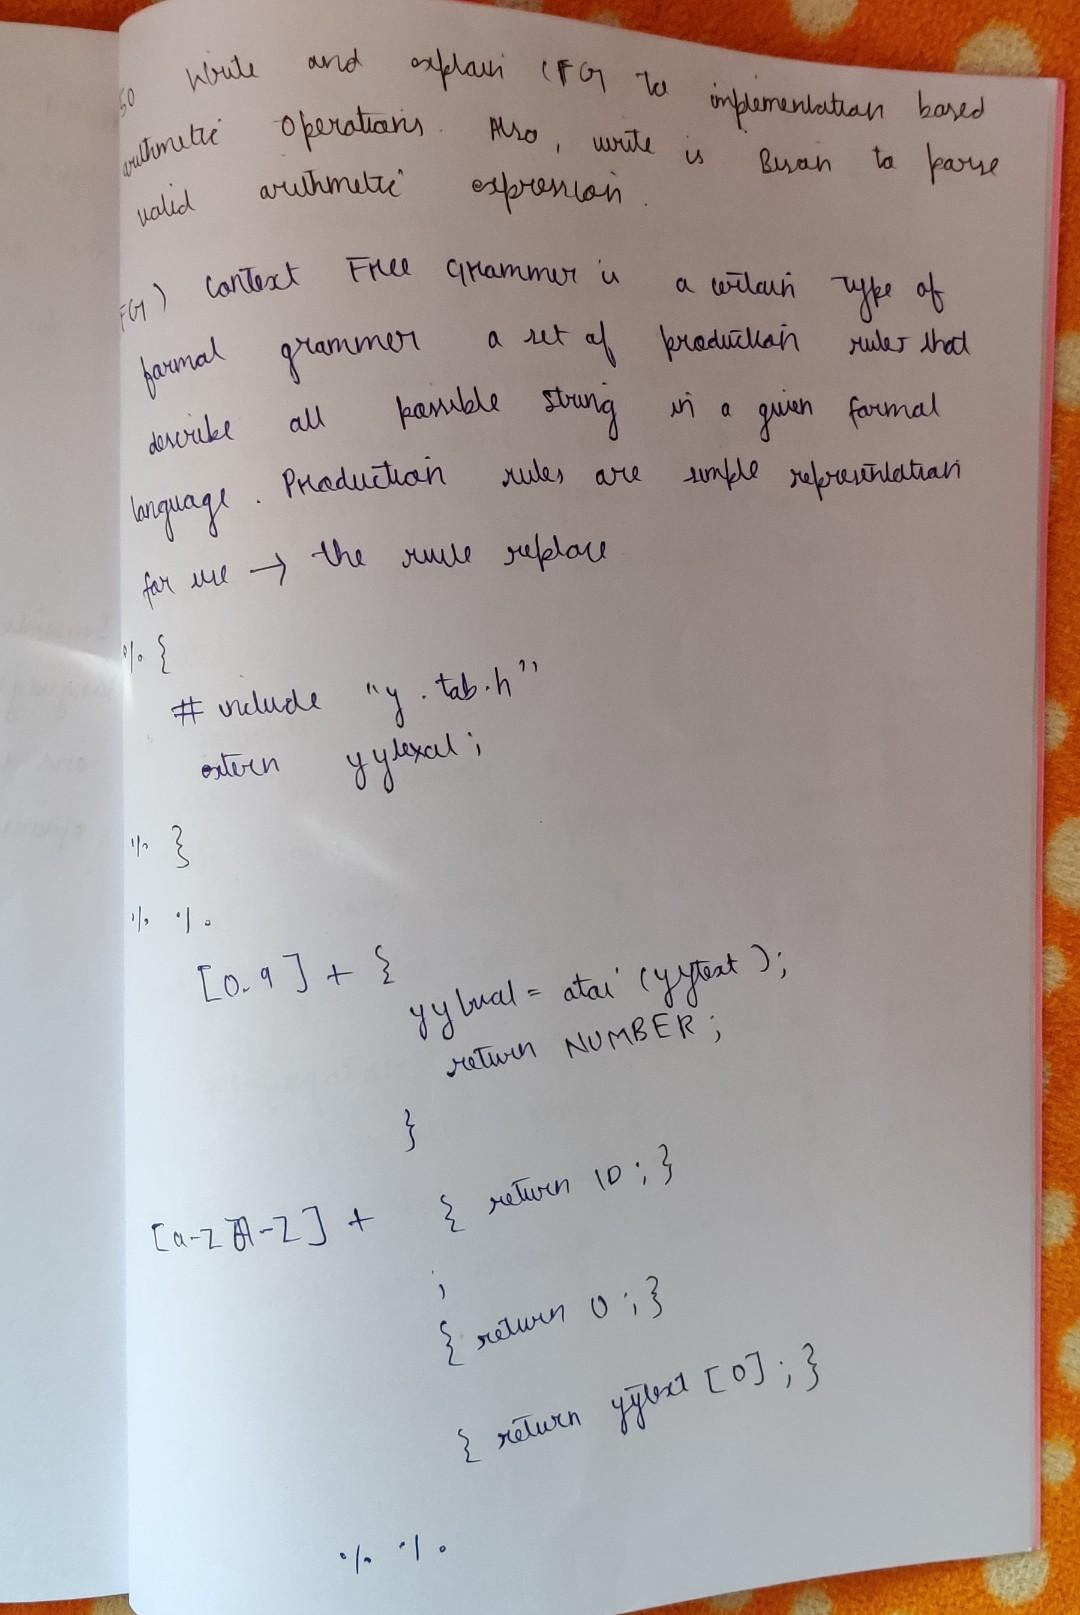 50 Write and explain CFG to implementation based
arithmetic operations. Also, write is Bison to parse
valid arithmetic expression.
FG) Context Free Grammer is a certain type of
formal grammer a set of production rules that
describe all possible string in a given formal
language. Production rules are simple representation
for use → the rule replace
% {
# include "y.tab.h"
extern yylval;
% }
% %
[0-9] + {
yylval = atoi (yytext);
return NUMBER;
}
[a-zA-Z] + { return ID; }
;
{ return 0; }
{ return yytext [0]; }
% %